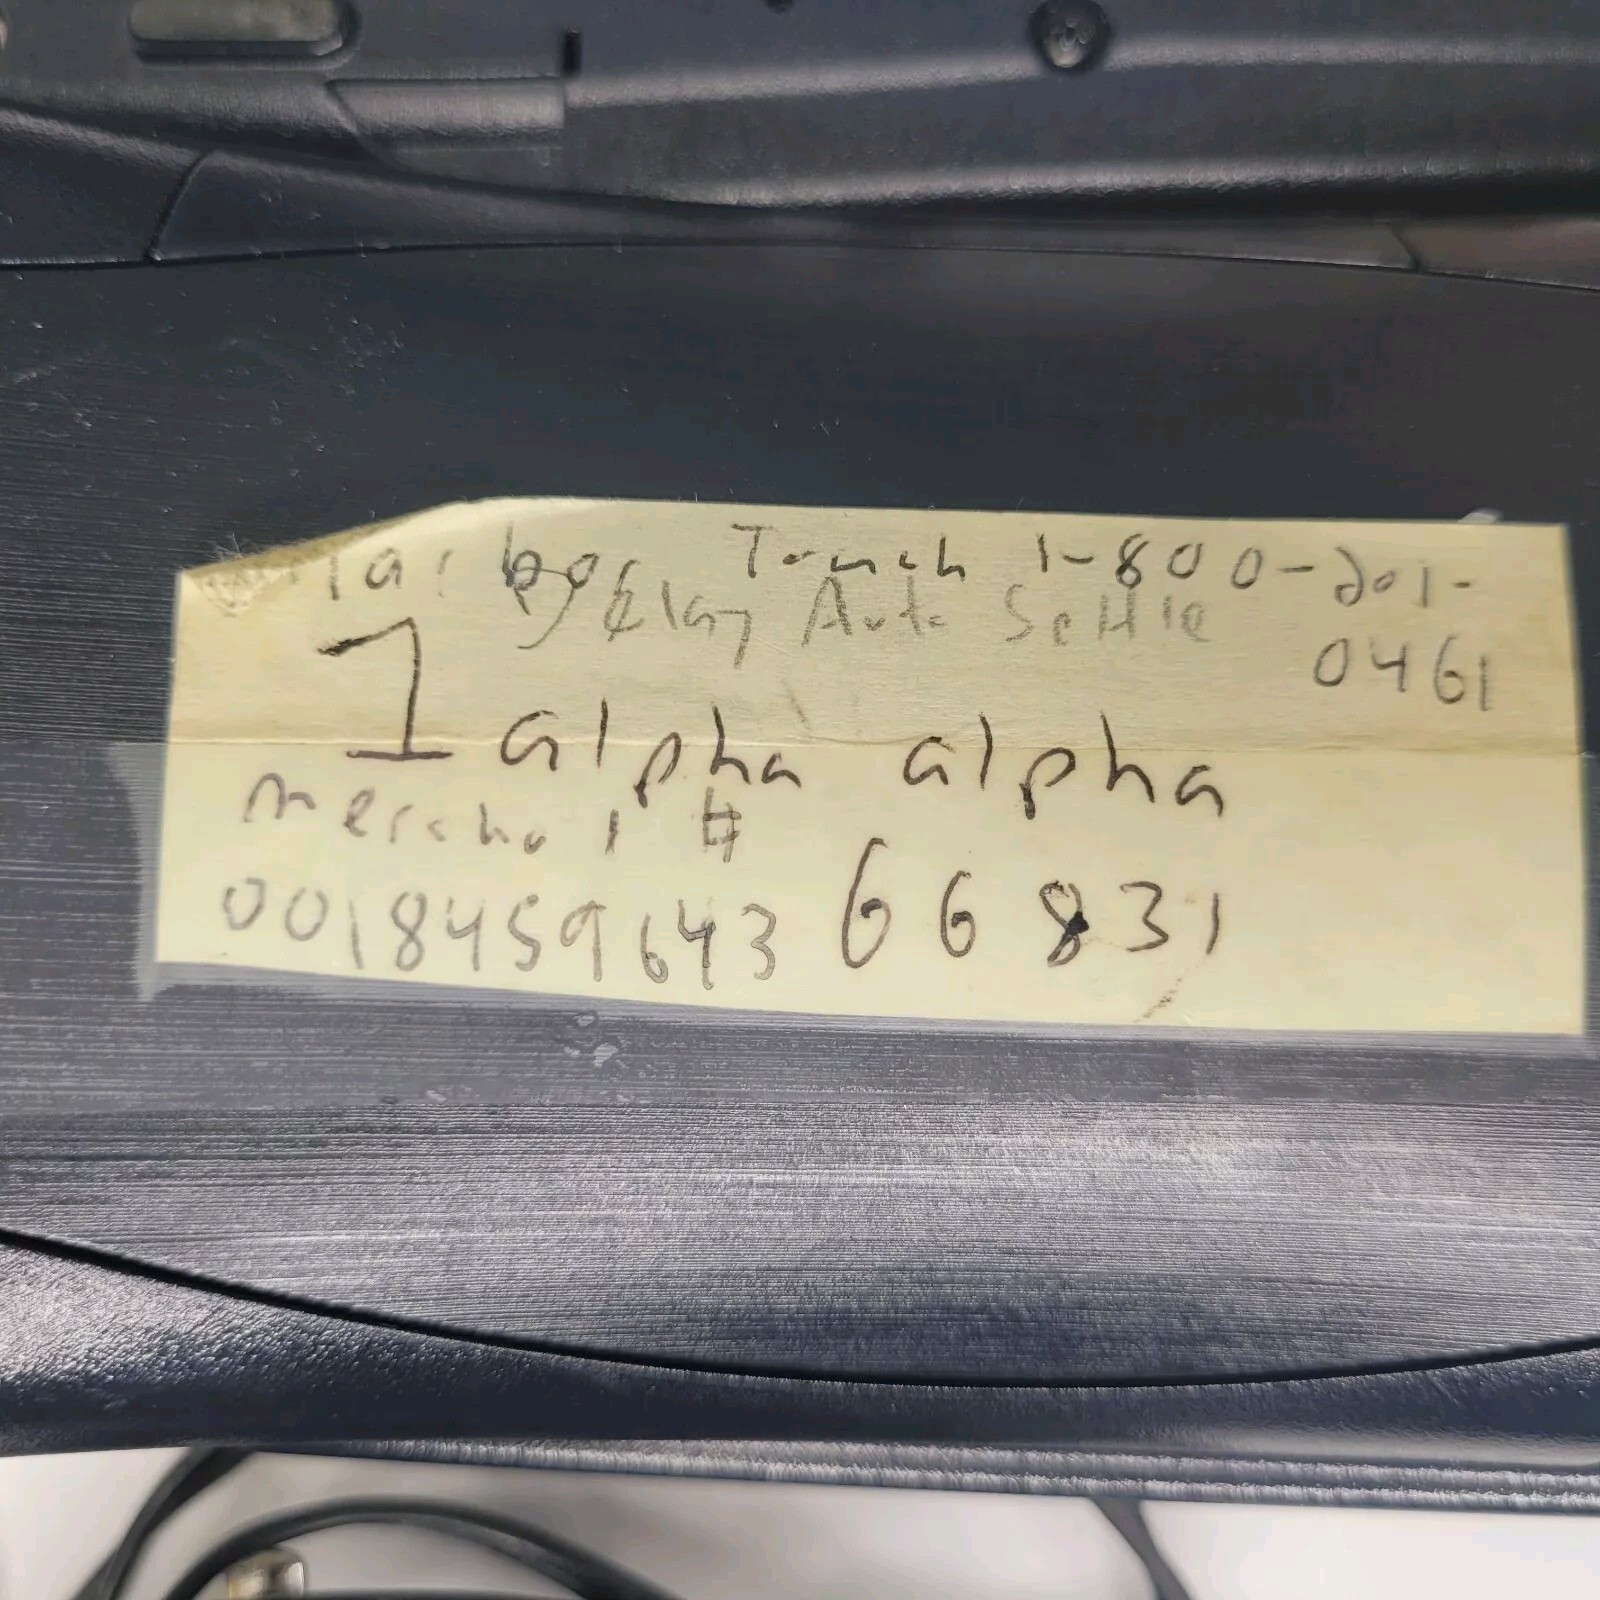 Touch 1-800-201-
0461
Auto Settle
1 alpha alpha
merchant #
0018459643 66831